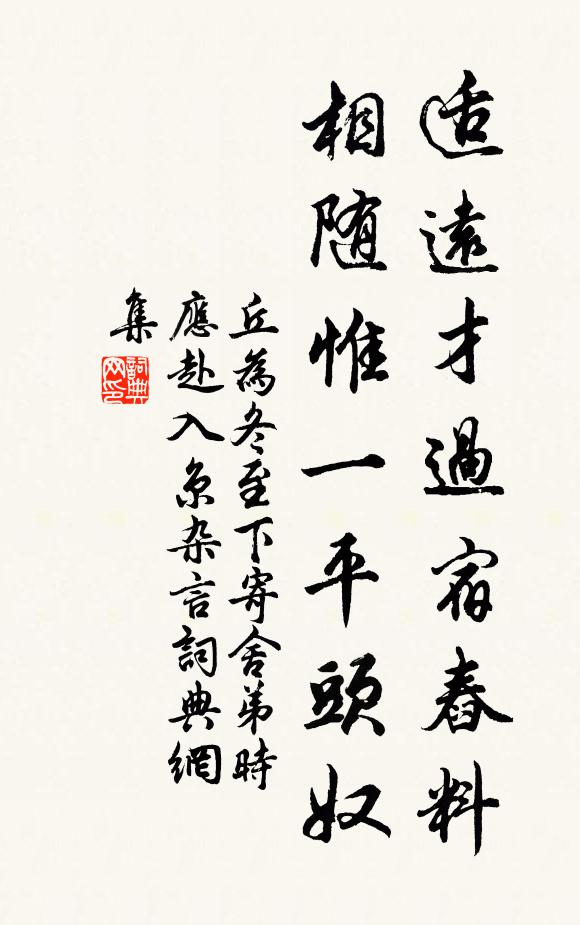 适遠才過宿舂料
相随惟一平頭奴
丘為冬至下寄舍弟時
應赴入京杂言詞典網
集
詞典
网印